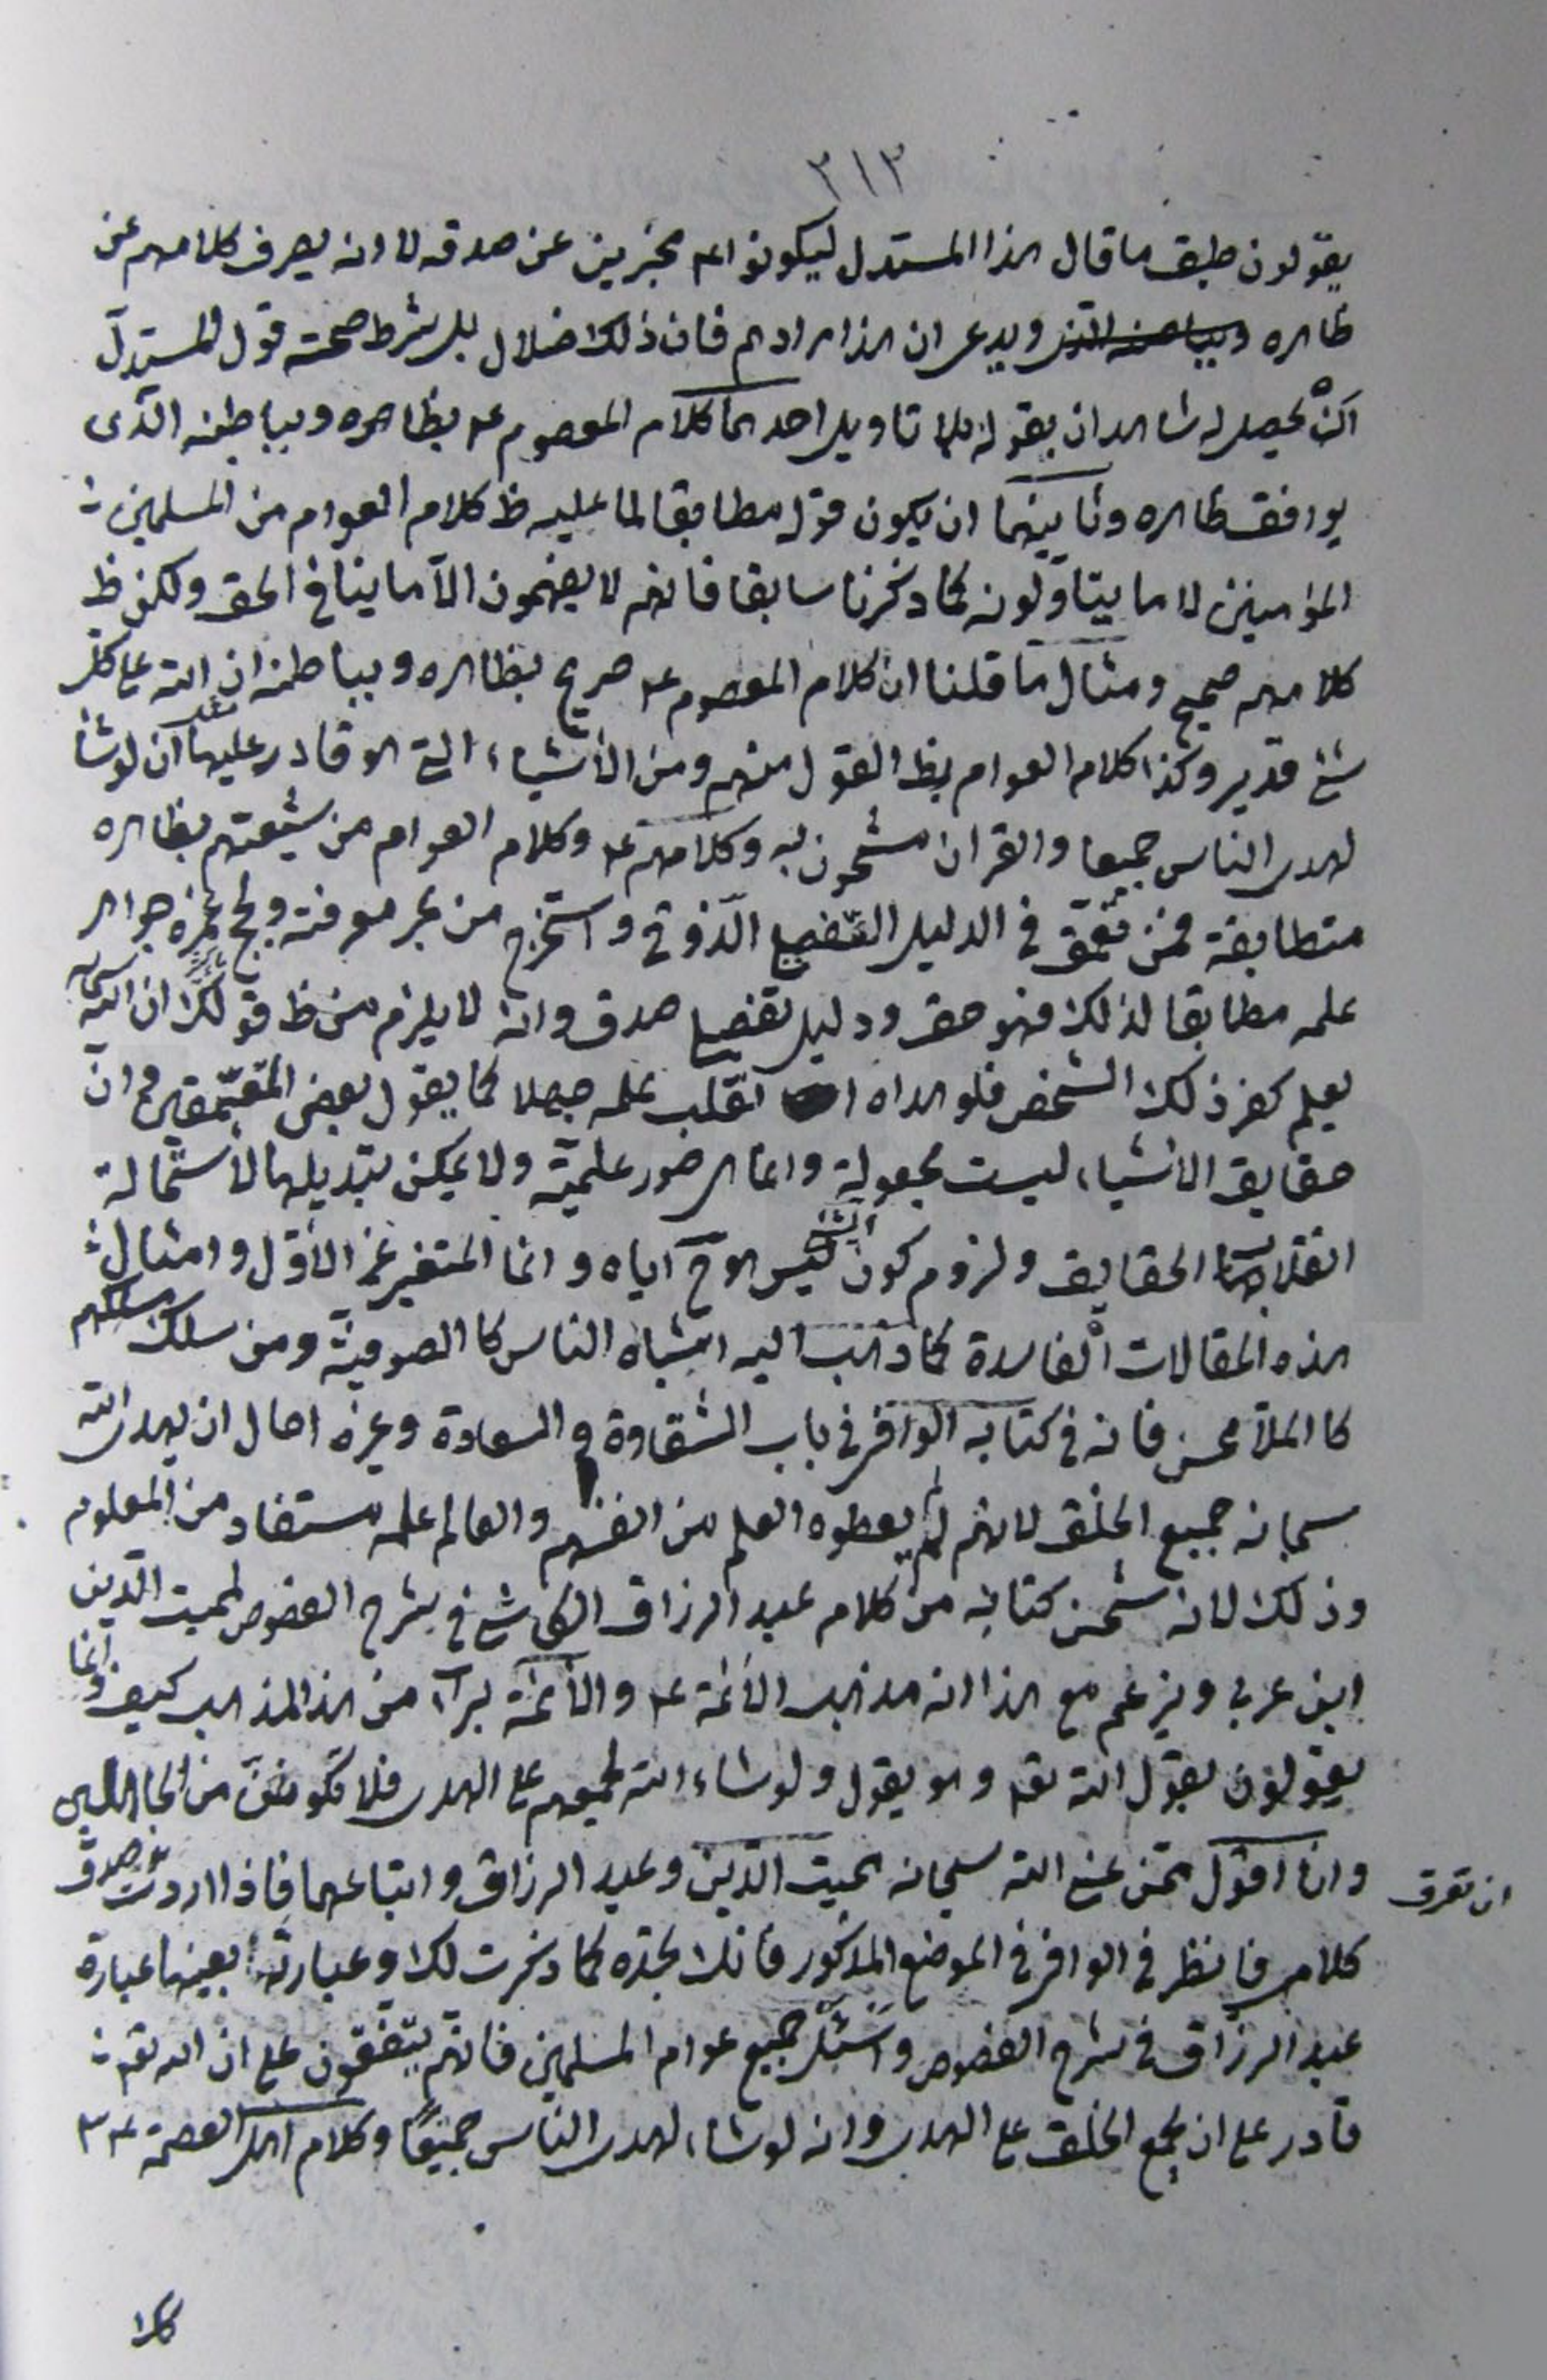 ٣١٣
يقولون طبق ما قال هذا المستدل ليكونوا ع مخبرين عن صدقه لا انه يصرف كلامهم عن
ظاهره ويدعى ان هذا مرادهم فان ذلك ضلال بل شرط صحته قول المستدل
ان يحصل له شاهدان بقوله بلا تاويل احدهما كلام المعصوم ع بظاهره وبباطنه الذى
يوافق ظاهره وثانيهما ان يكون قوله مطابقا لما عليه ظ كلام العوام من المسلمين
المؤمنين لا ما يتاولونه كما ذكرنا سابقا فانهم لا يفهمون الا ما ينافى الحق ولكن ظ
كلامهم صحيح ومثال ما قلنا ان كلام المعصوم ع صريح بظاهره وبباطنه ان الله على كل
شئ قدير وكذا كلام العوام بظ القول منهم ومن الأشياء التى هو قادر عليها ان لو شاء
لهدى الناس جميعا والقران مشحون به وكلامهم ع وكلام العوام من شيعتهم بظاهره
متطابقة فمن تعمق فى الدليل الذوقى واستخرج من بحر معرفته ولج جواهر
علمه مطابقا لذلك فهو حق ودليل صدق وانه لا يلزم من ظ قولك ان الله
يعلم كفر ذلك الشخص فلو هداه انقلب علمه جهلا كما يقول بعض المتعمقين وان
حقايق الاشياء ليست مجعولة وانما هى صور علمية ولا يمكن تبديلها لاستحالة
انقلاب الحقايق ولزوم كون الشئ ليس هو ح اياه وانما المتغير غير الأول وامثال
هذه المقالات الفاسدة كما ذهب اليه اشباه الناس كا الصوفية ومن سلك مسلكهم
كا الملا محسن فانه فى كتابه الوافى فى باب الشقاوة والسعادة وغيره احال ان يهدى الله
سبحانه جميع الخلق لانهم لم يعطوه العلم من انفسهم والعالم علمه مستفاد من المعلوم
وذلك لانه شحن كتابه من كلام عبد الرزاق الكاشى فى شرح الفصوص لمميت الدين
ابن عربي ويزعم مع هذا انه مذهب الأئمة ع والأئمة برآء من هذا المذهب كيف وانما
يقولون بقول الله تعه وهو يقول ولو شاء الله لجمعهم على الهدى فلا تكونن من الجاهلين
وانا اقول نحن عنى الله سبحانه بمميت الدين وعبد الرزاق واتباعهما فاذا اردت ان تعرف صدق
كلامى فانظر فى الوافى فى الموضع المذكور فانك تجده كما ذكرت لك وعبارته بعينها عبارة
عبد الرزاق فى شرح الفصوص واسئل جميع عوام المسلمين فانهم يتفقون على ان الله تعه
قادر على ان يجمع الخلق على الهدى وانه لو شاء لهدى الناس جميعًا وكلام اهل العصمة ع